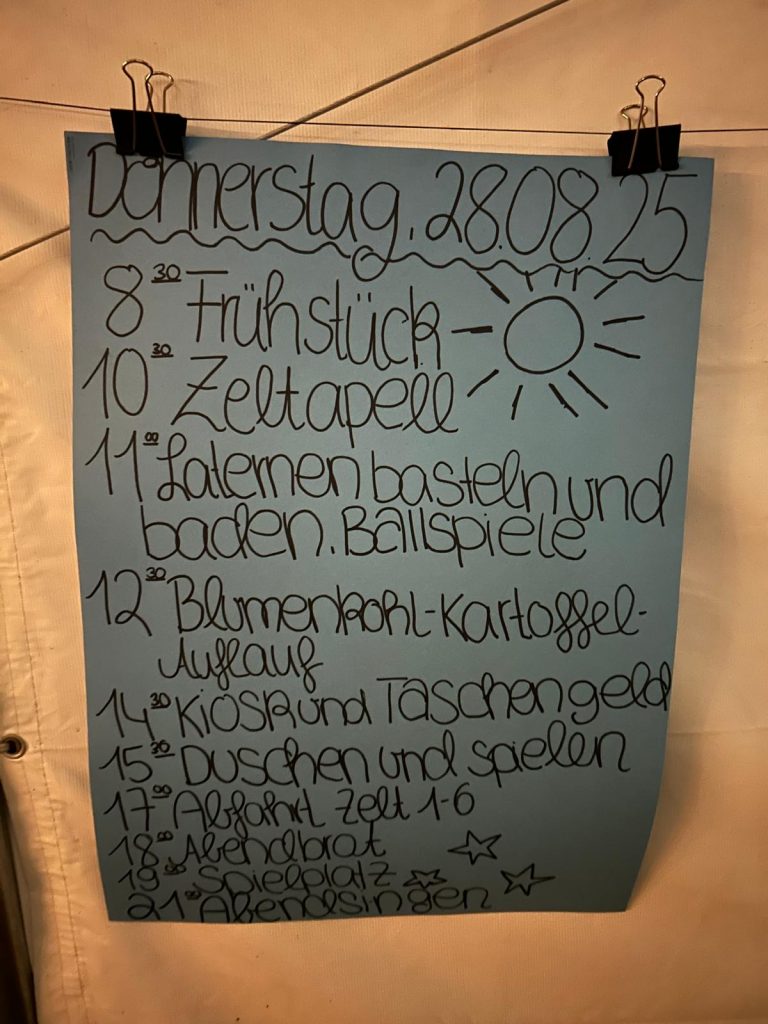 Donnerstag, 28.08.25
8³⁰ Frühstück
10³⁰ Zeltapell
11⁰⁰ Laternen basteln und
baden. Ballspiele
12³⁰ Blumenkohl-Kartoffel-
Auflauf
14³⁰ Kiosk und Taschengeld
15³⁰ Duschen und spielen
17⁰⁰ Abfahrt Zelt 1-6
18⁰⁰ Abendbrot
19⁰⁰ Spielplatz
21⁰⁰ Abendsingen